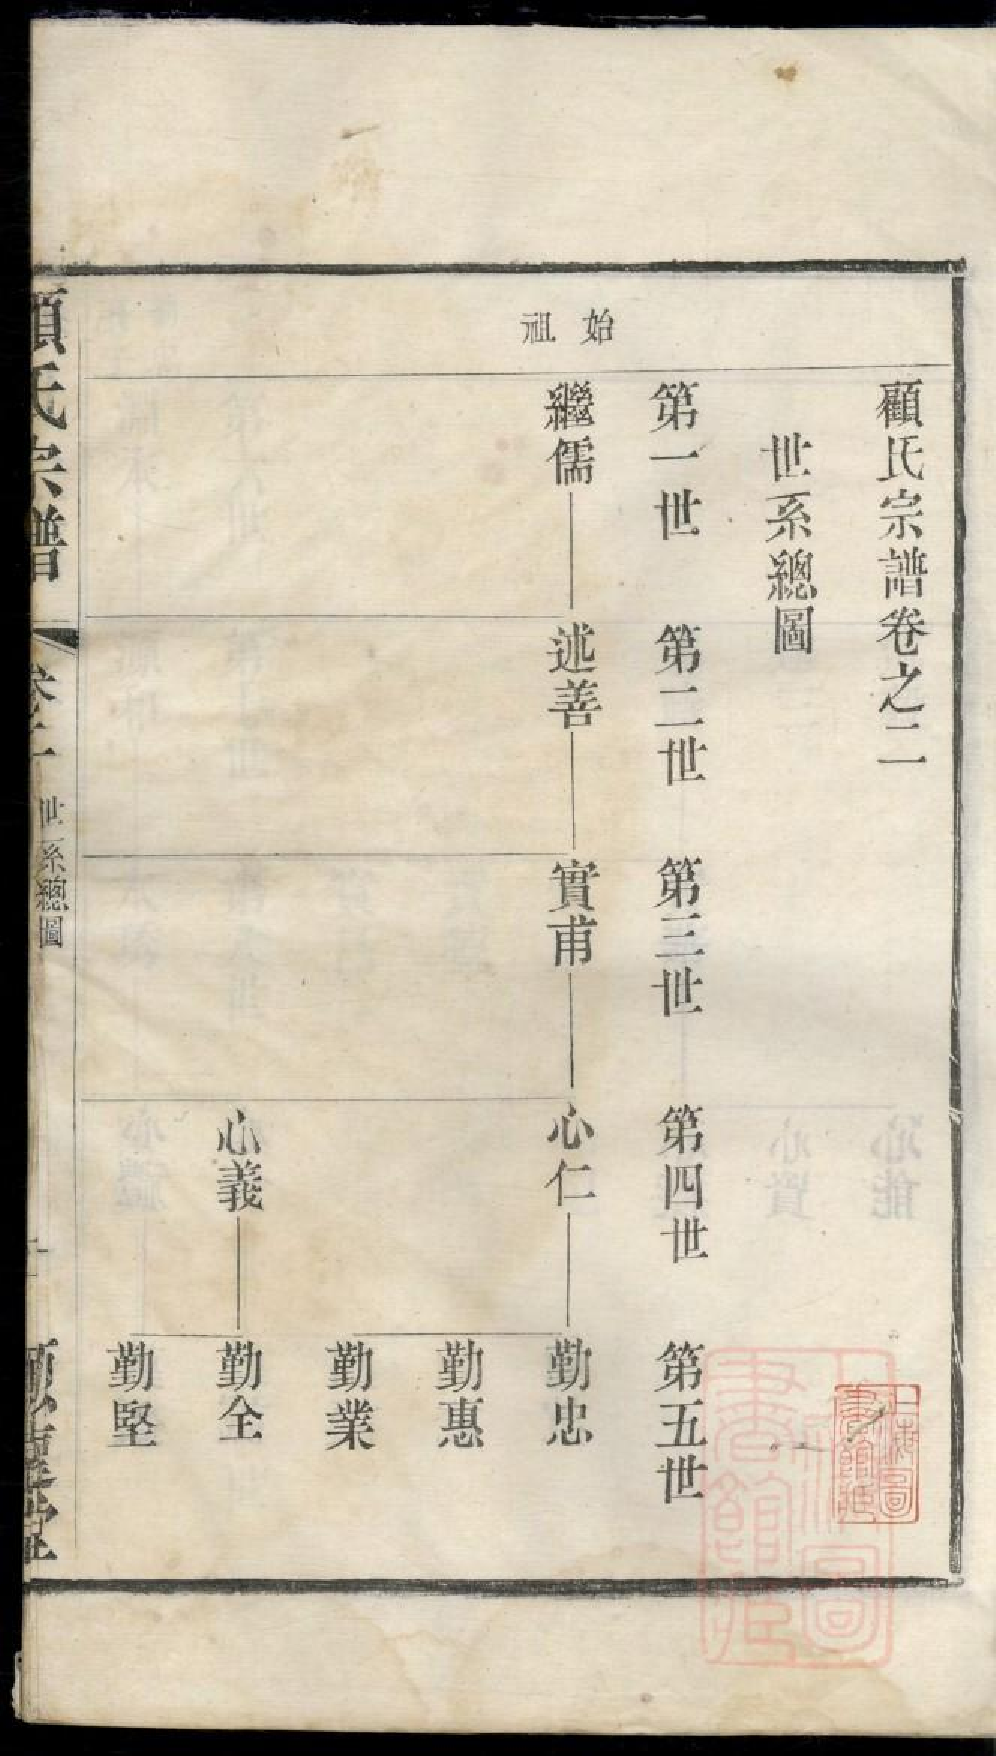 顧氏宗譜卷之二
世系總圖
第一世 第二世 第三世 第四世 第五世
始祖
繼儒 述善 實甫 心仁 勤忠
勤惠
勤業
心義 勤全
勤堅
顧氏宗譜 卷二 世系總圖 一
上海圖書館藏
上海圖書館藏